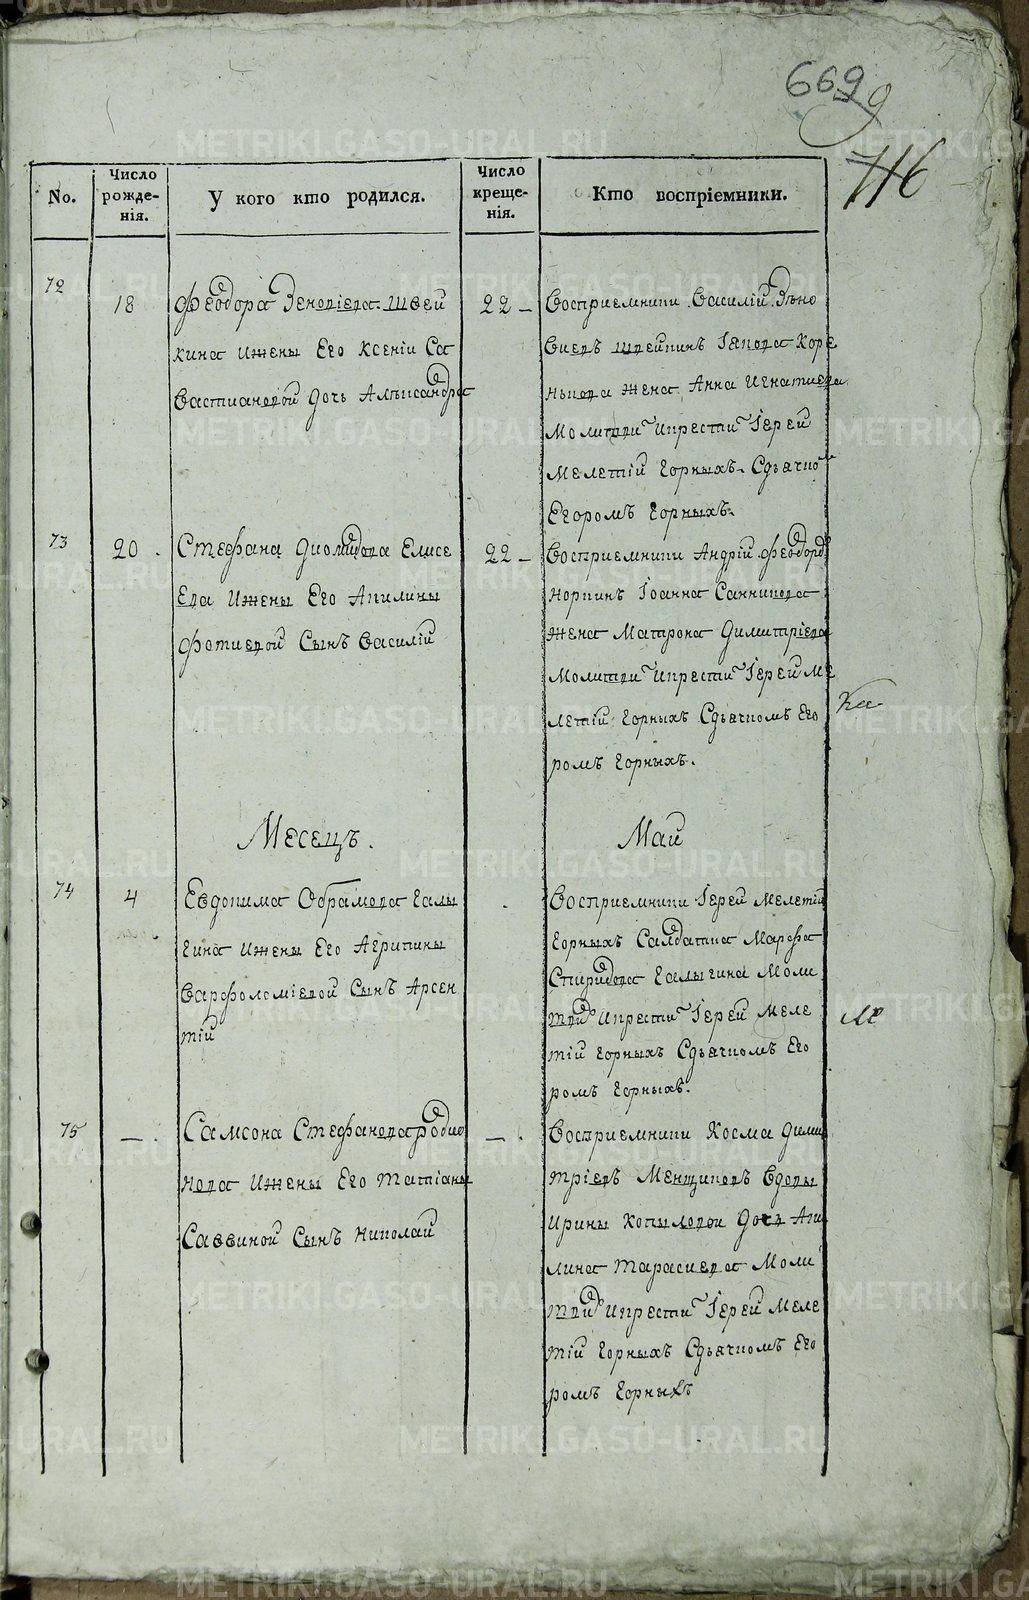 669 9
116
No.
Число рожденія.
У кого кто родился.
Число крещенія.
Кто воспріемники.
72
18
Феодора Зеновіева Швей
кина ижены Его Ксеніи Са
вастиановой дочь Алъисандра
22 –
Восприемники Василій Зѣно
виевъ Швейкинъ Іякова Коре
нькова жена Анна Игнатиева
Молитви икрести Іерей
Мелетій Горныхъ Сдьячко
Егоромъ Горныхъ.
73
20
Стефана Диомидова Елисе
Ева ижены Его Акилины
Фотиевой Сынъ Василій
22 –
Восприемники Андрій Феодор
Норкинъ Іоанна Санникова
жена Матрона Димитріева
Молитви икрести Іерей Ме
летій Горныхъ Сдьячкомъ Его
ромъ Горныхъ.
Месецъ.
Май
74
4
Евдокима Обрамова Галы
гина ижены Его Агрипины
Варфоломіевой Сынъ Арсен
тій
Восприемники Іерей Мелетій
Горныхъ Салдатка Марфа
Спиридова Галыгина Моли
твий икрести Іерей Меле
тій Горныхъ Сдьячкомъ Его
ромъ Горныхъ.
75
– .
Самсона Стефанова Родио
нова ижены Его татіаны
Саввиной Сынъ Николай
– .
Восприемники Косма Дими
тріевъ Менщиковъ Вдовы
Ирины Копыловой Дочь Аки
лина Тарасиева Моли
твий икрести Іерей Меле
тій Горныхъ Сдьячкомъ Его
ромъ Горныхъ
METRIKI.GASO-URAL.RU